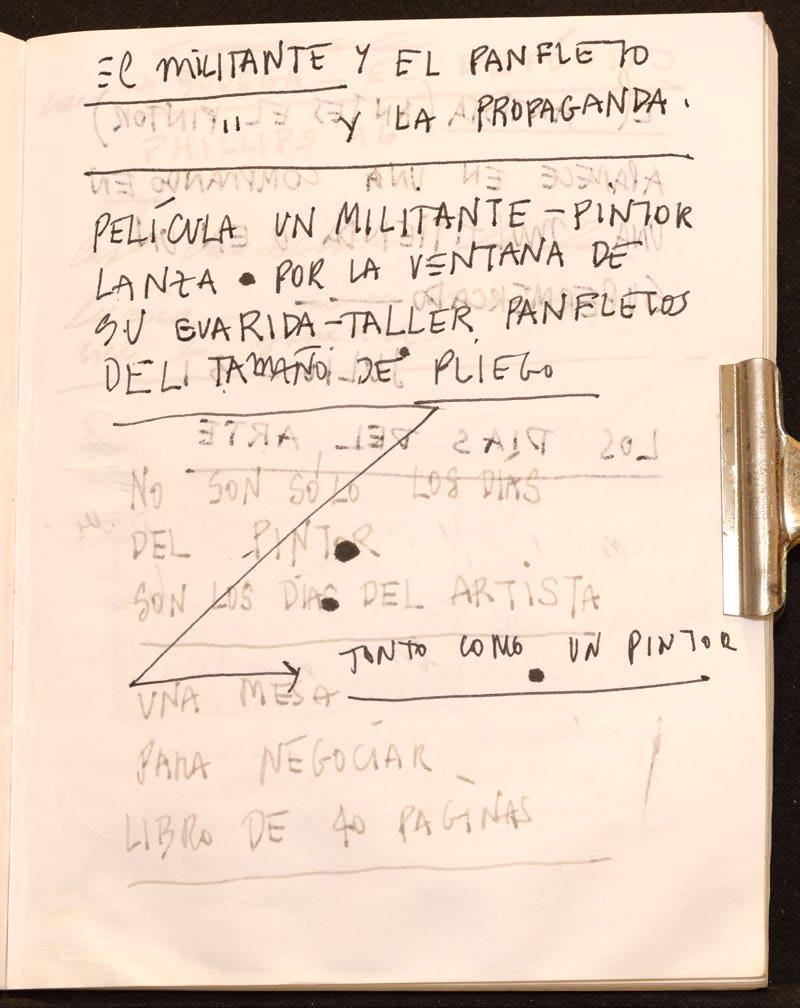 El MILITANTE Y EL PANFLETO
" Y LA PROPAGANDA.
PELÍCULA UN MILITANTE-PINTOR
LANZA • POR LA VENTANA DE
SU GUARIDA-TALLER PANFLETOS
DEL TAMAÑO DE PLIEGO
LOS DIAS DEL ARTE
NO SON SOLO LOS DIAS
DEL PINTOR
SON LOS DIAS DEL ARTISTA
TONTO COMO UN PINTOR
UNA MESA
PARA NEGOCIAR
LIBRO DE 40 PAGINAS